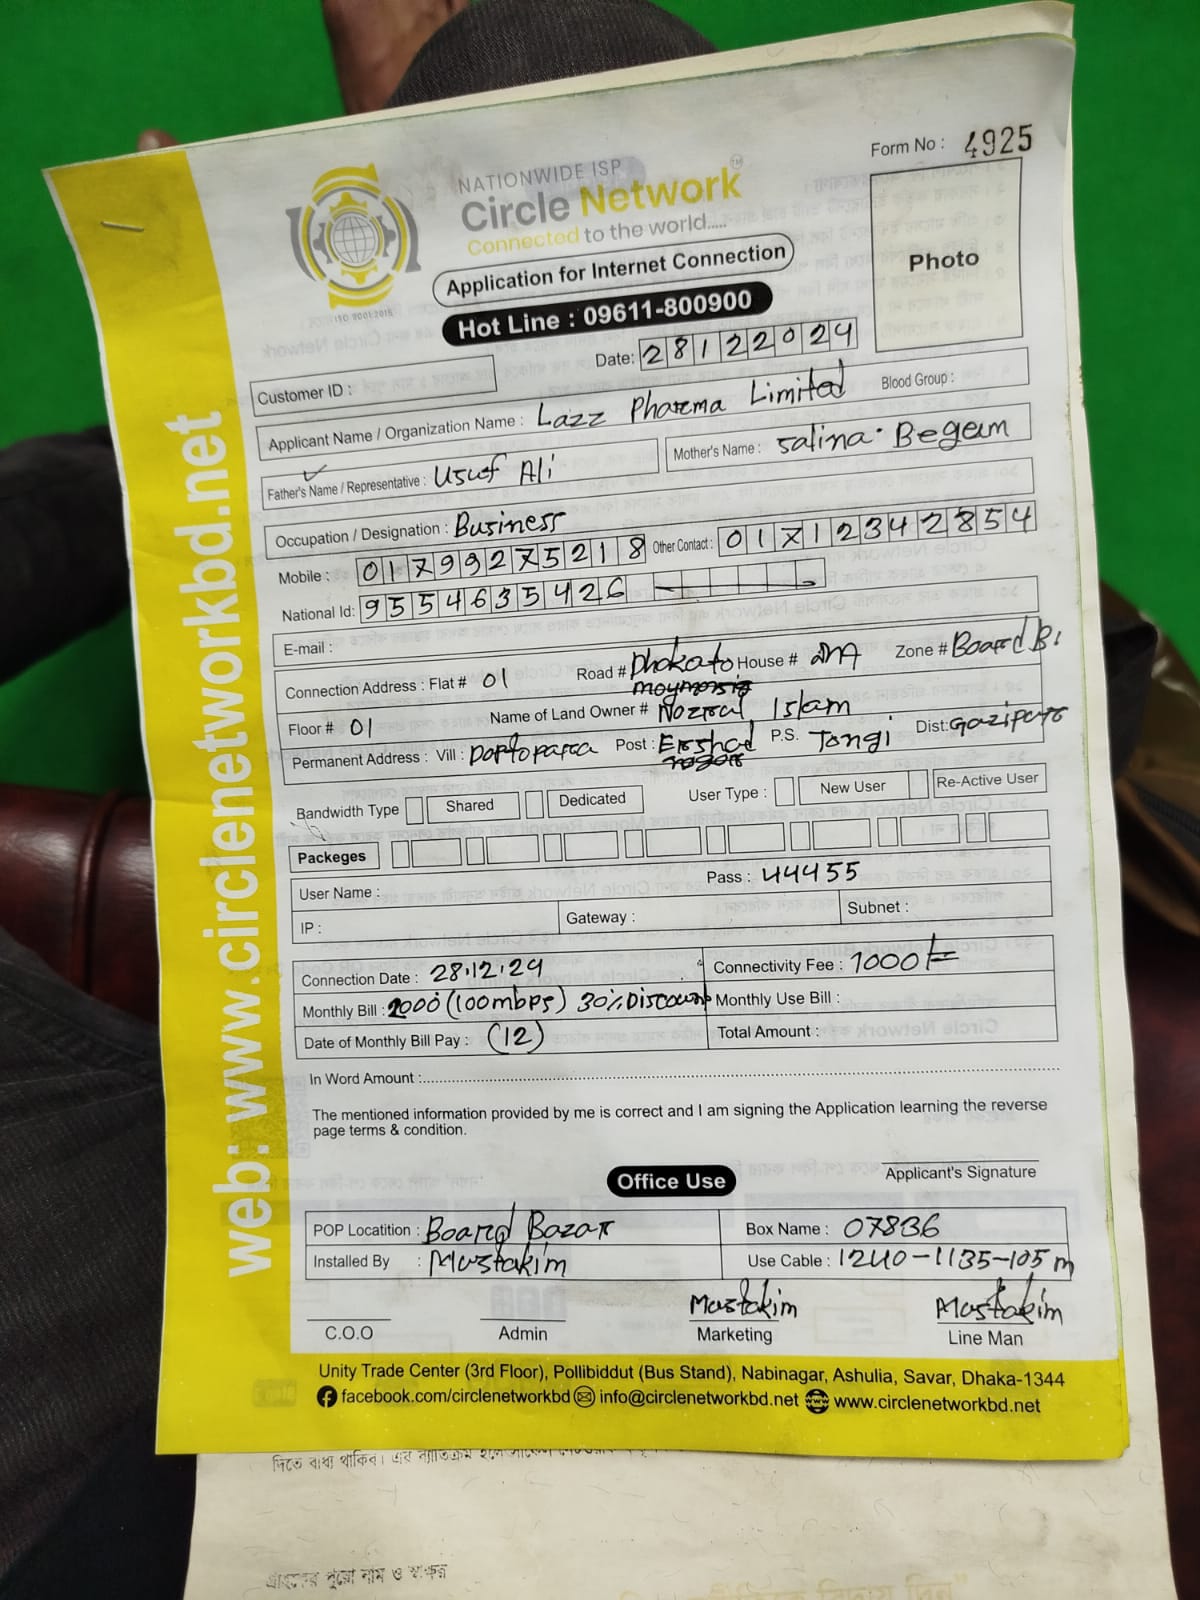 Form No : 4925
NATIONWIDE ISP
Circle Network TM
Connected to the world.....
Application for Internet Connection
Hot Line : 09611-800900
Photo
ISO 9001:2015
Date: 28122024
Customer ID :
Applicant Name / Organization Name : Lazz Pharma Limited Blood Group :
Father's Name / Representative : Usuf Ali Mother's Name : Salina Begum
Occupation / Designation : Business
Mobile : 01799275218 Other Contact : 01712342854
National Id: 9554635426
E-mail :
Connection Address : Flat # 01 Road # Dhakato House # Zone # Board B.
Floor # 01 Name of Land Owner # Nozrol Islam
Permanent Address : Vill : Dottopara Post : Ershad P.S. Tongi Dist: Gazipur
Bandwidth Type Shared Dedicated User Type : New User Re-Active User
Packeges
User Name : Pass : 44455
IP : Gateway : Subnet :
Connection Date : 28.12.24 Connectivity Fee : 1000/=
Monthly Bill : 2000 (100mbps) 30% Discount Monthly Use Bill :
Date of Monthly Bill Pay : (12) Total Amount :
In Word Amount :
The mentioned information provided by me is correct and I am signing the Application learning the reverse
page terms & condition.
Applicant's Signature
Office Use
POP Locatition : Board Bazar Box Name : 07836
Installed By : Mustakim Use Cable : 1240-1135-105 m
Mustakim Mustakim
C.O.O Admin Marketing Line Man
Unity Trade Center (3rd Floor), Pollibiddut (Bus Stand), Nabinagar, Ashulia, Savar, Dhaka-1344
facebook.com/circlenetworkbd info@circlenetworkbd.net www.circlenetworkbd.net
web: www.circlenetworkbd.net
দিতে বাধ্য থাকিব। এর ব্যতিক্রম হলে
গ্রাহকের পুরো নাম ও স্বাক্ষর